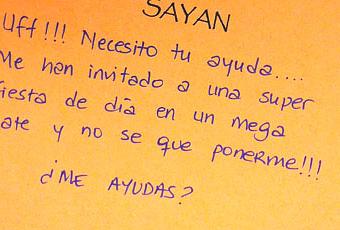 SAYAN
Uff!!! Necesito tu ayuda....
Me han invitado a una super
fiesta de día en un mega
ate y no se que ponerme!!!
¿ME AYUDAS?